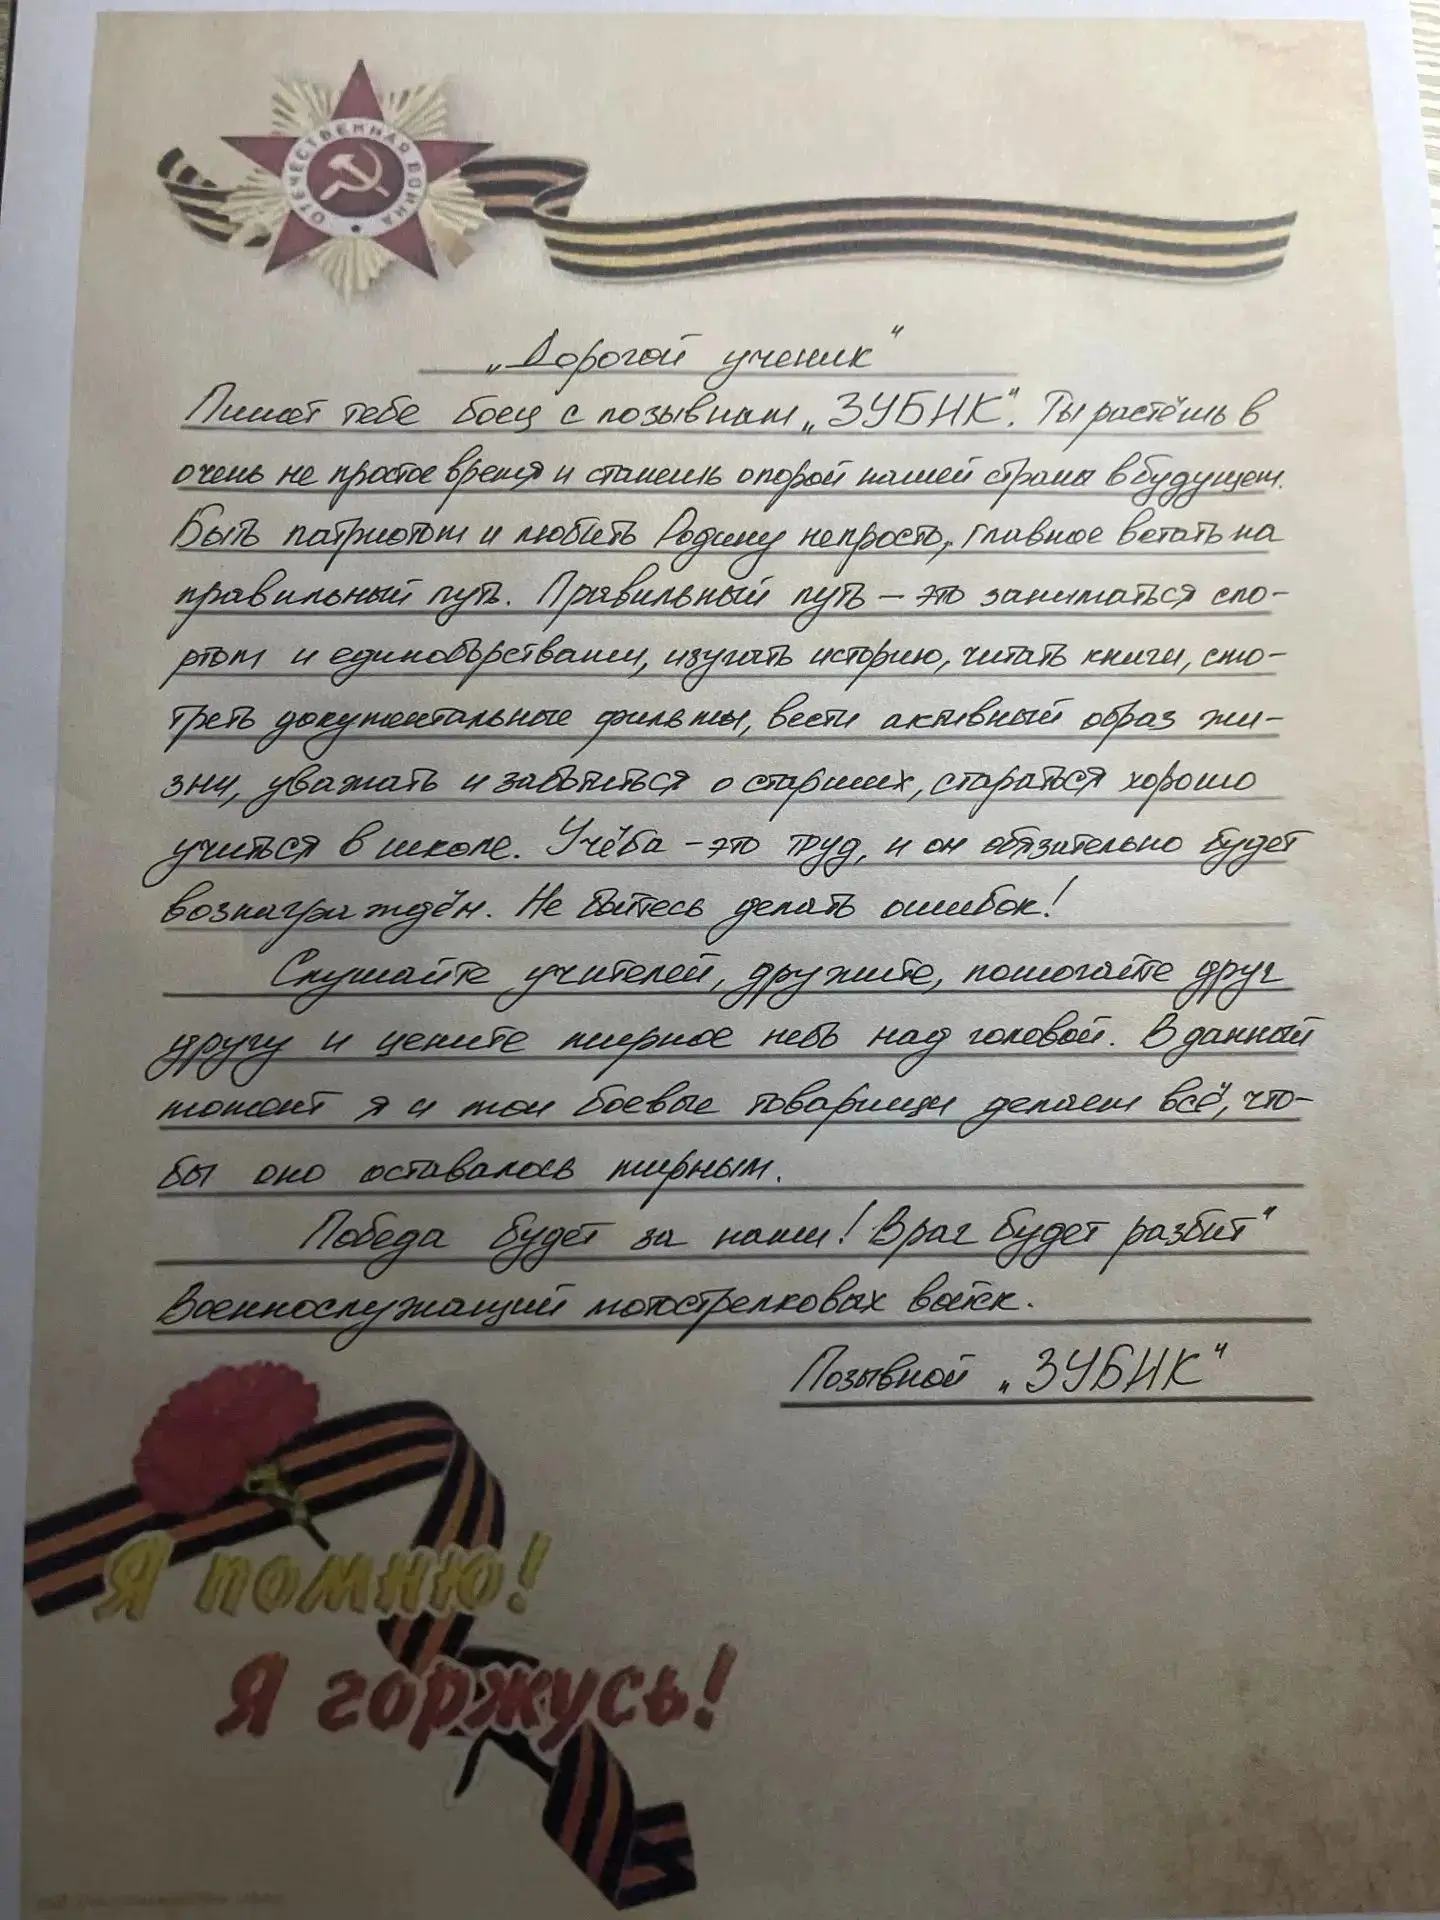 ОТЕЧЕСТВЕННАЯ ВОЙНА
„Дорогой ученик“
Пишет тебе боец с позывным „ЗУБИК“. Ты растёшь в
очень не простое время и станешь опорой нашей страны в будущем.
Быть патриотом и любить Родину непросто, главное встать на
правильный путь. Правильный путь – это заниматься спо-
ртом и единоборствами, изучать историю, читать книги, смо-
треть документальные фильмы, вести активный образ жи-
зни, уважать и заботиться о старших, стараться хорошо
учиться в школе. Учёба – это труд, и он обязательно будет
вознаграждён. Не бойтесь делать ошибок!
Слушайте учителей, дружите, помогайте друг
другу и цените мирное небо над головой. В данный
момент я и мои боевые товарищи делаем всё, что-
бы оно оставалось мирным.
Победа будет за нами! Враг будет разбит"
Военнослужащий мотострелковых войск.
Позывной „ЗУБИК“
Я помню!
Я горжусь!